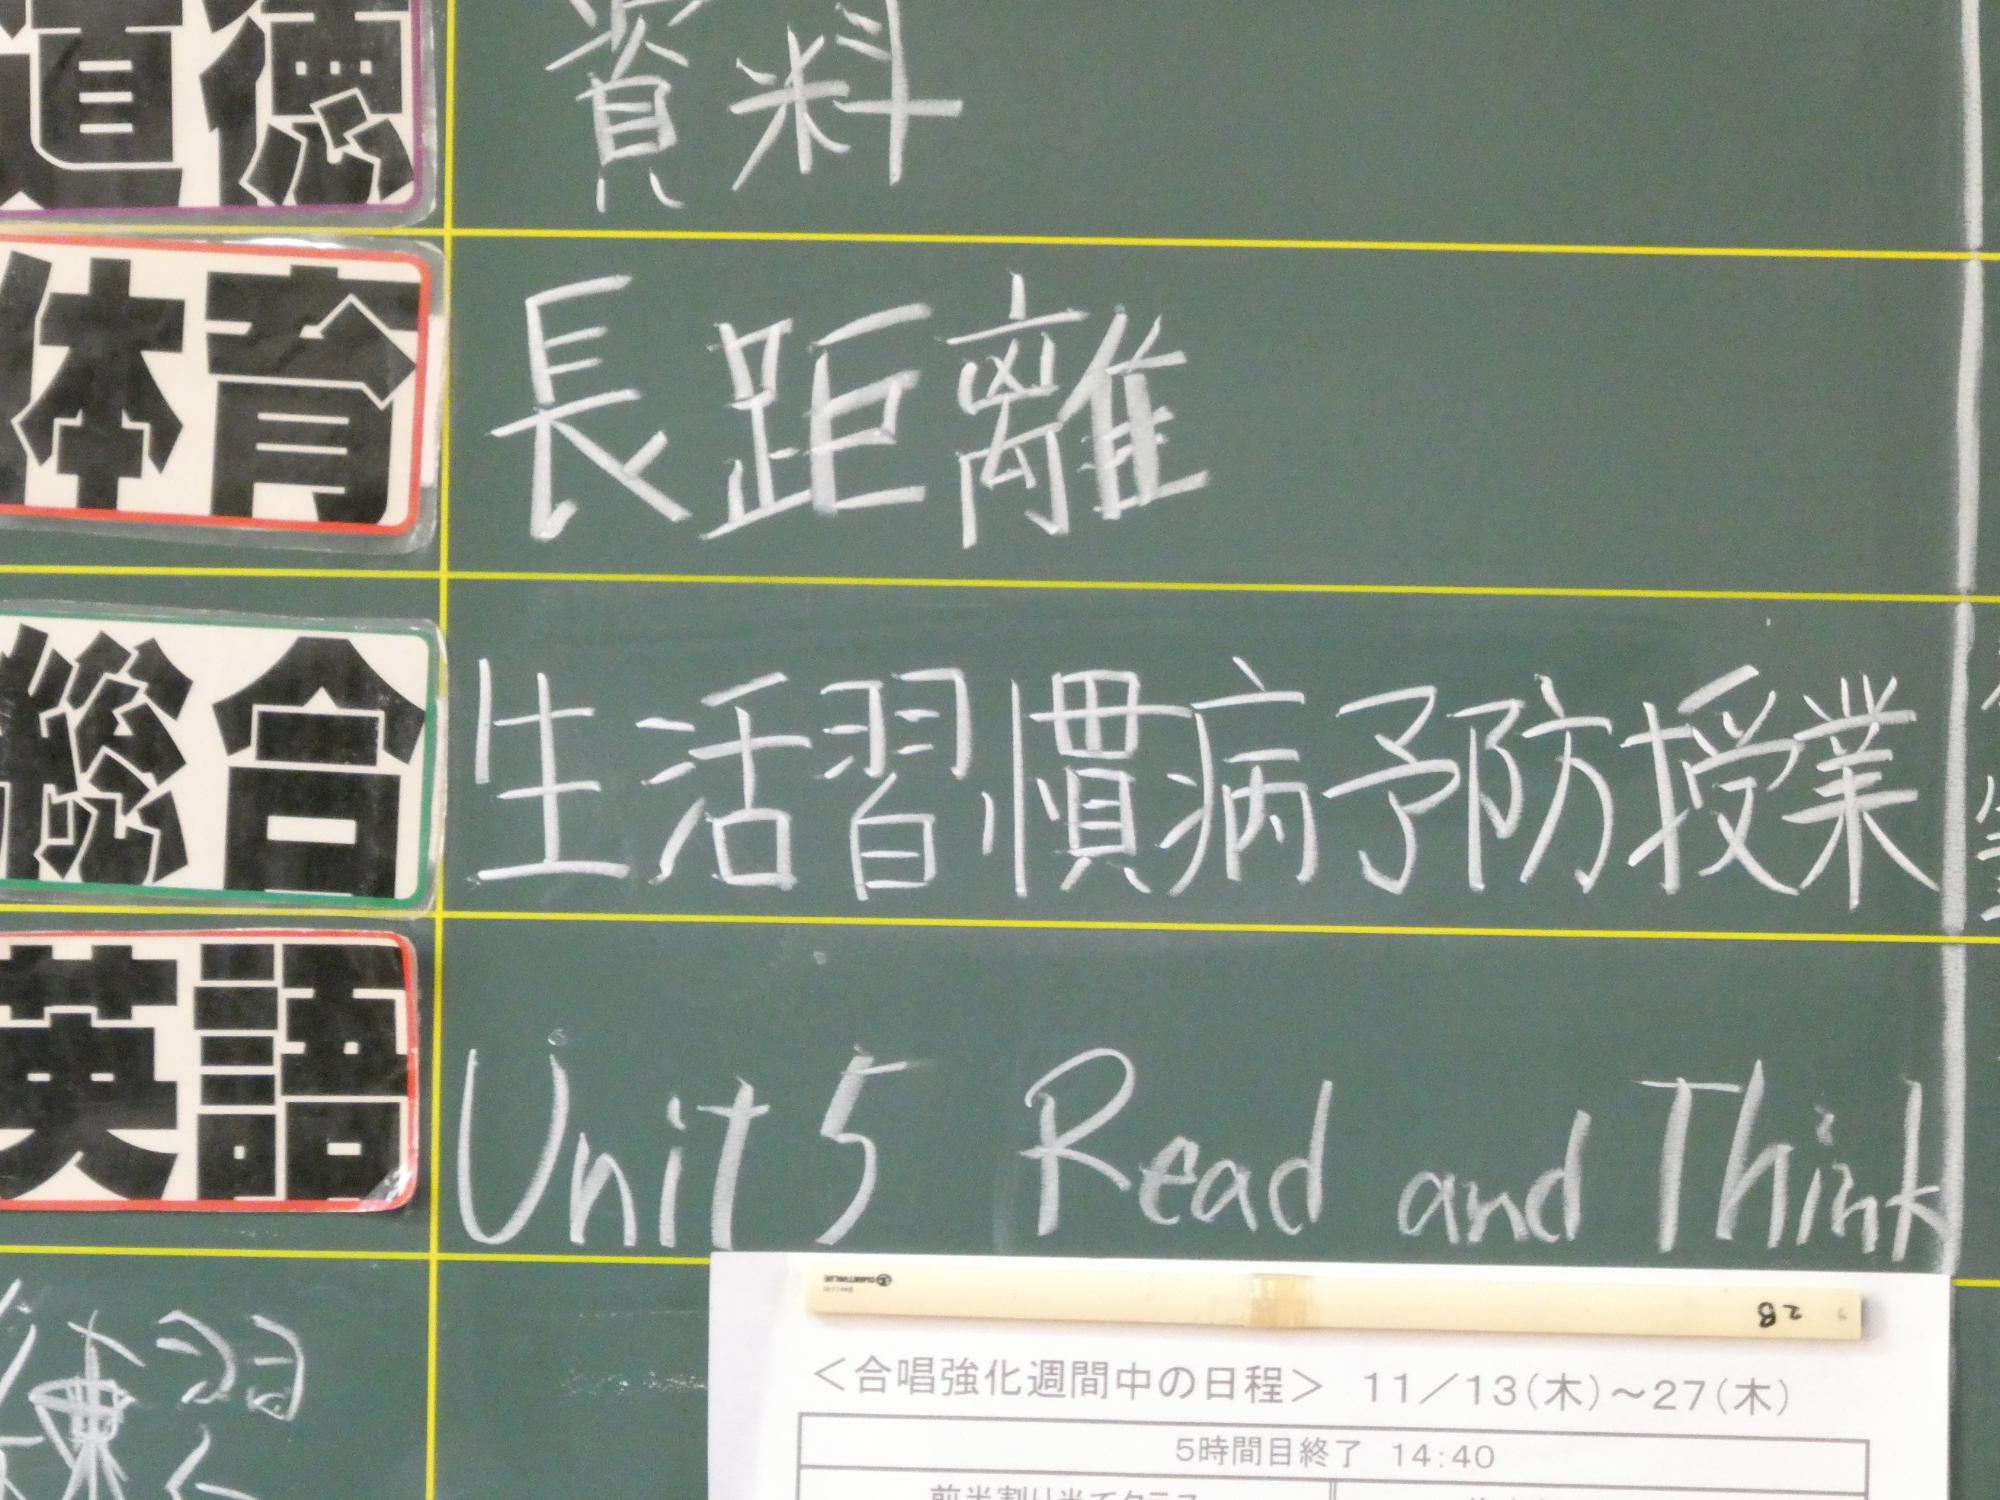 道徳 資料
体育 長距離
総合 生活習慣病予防授業
英語 Unit 5 Read and Think
練習
2B
＜合唱強化週間中の日程＞ 11／13(木)～27(木)
5時間目終了 14:40
前半割り当てクラス